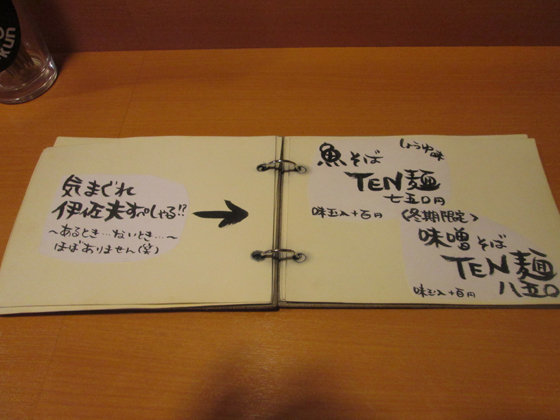 気まぐれ
伊佐夫すぺしゃる!?
～あるとき…ないとき…～
ほぼありません(笑)
魚そば
しょうゆ味
TEN麺
七五〇円
味玉入+百円
〈冬期限定〉
味噌そば
TEN麺
八五〇
味玉入+百円
kun